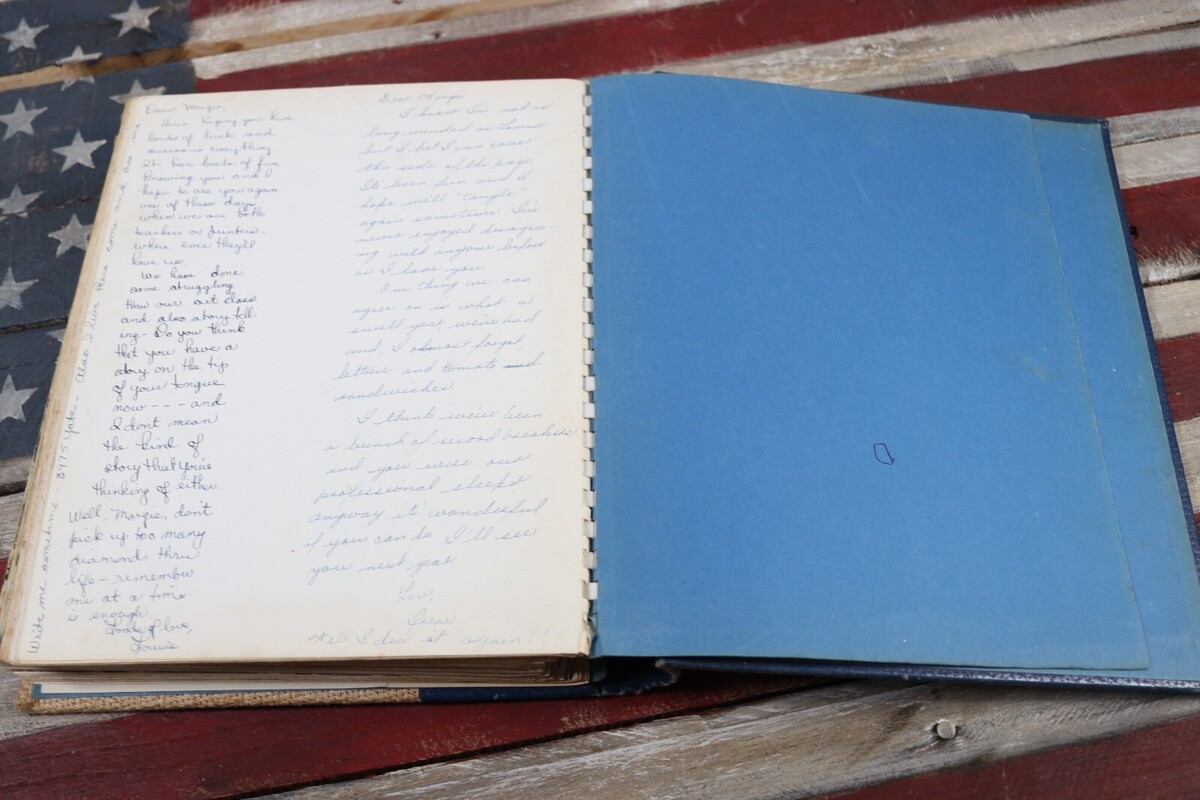 Dear Margie,
Here's hoping you have
loads of luck and
success in everything
It's been loads of fun
knowing you and I
hope to see you again
one of these days
when we are both
teachers or printers.
where ever they'll
have us.
We have done
some struggling
thru our art class
and also story tell-
ing - Do you think
that you have a
story on the tip
of your tongue
now - - - and
I don't mean
the kind of
story that you're
thinking of either.
Well, Margie, don't
pick up too many
diamonds thru
life - remember
one at a time
is enough.
Loads of love,
Louise
Write me sometime - 3975 Yates - Also I live there come and see me
Dear Marge
I know I'm not as
long winded as Louise
but I bet I can cover
the side of the page.
It's been fun and I
hope we'll "tangle"
again sometime. I've
never enjoyed disagree-
ing with anyone before
as I have you.
One thing we can
agree on is what a
swell year we've had
and, I almost forgot,
lettuce and tomato
sandwiches.
I think we've been
a bunch of record breakers
and you were our
professional sleeper
anyway it's wonderful
if you can do I'll see
you next year
Love,
Irene
Well I did it again!!!